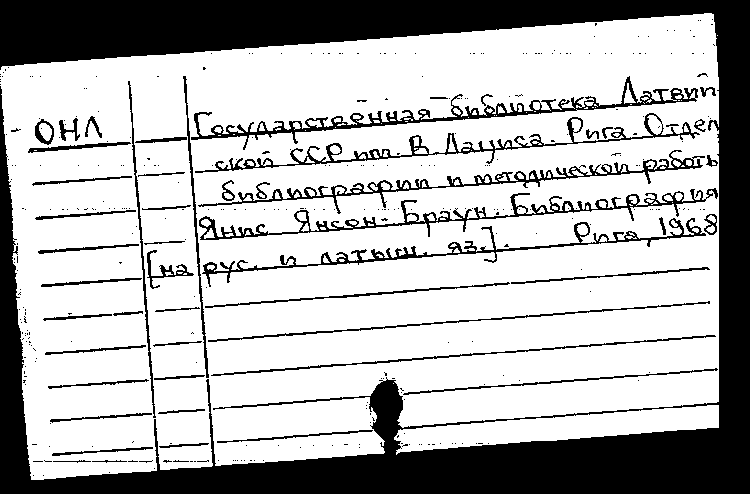 ОНЛ
Государственная библиотека Латвий-
ской ССР им. В Лациса. Рига. Отдел
библиографии и методической работы
Янис Янсон-Браун. Библиография
[на рус. и латыш. яз.]. Рига, 1968